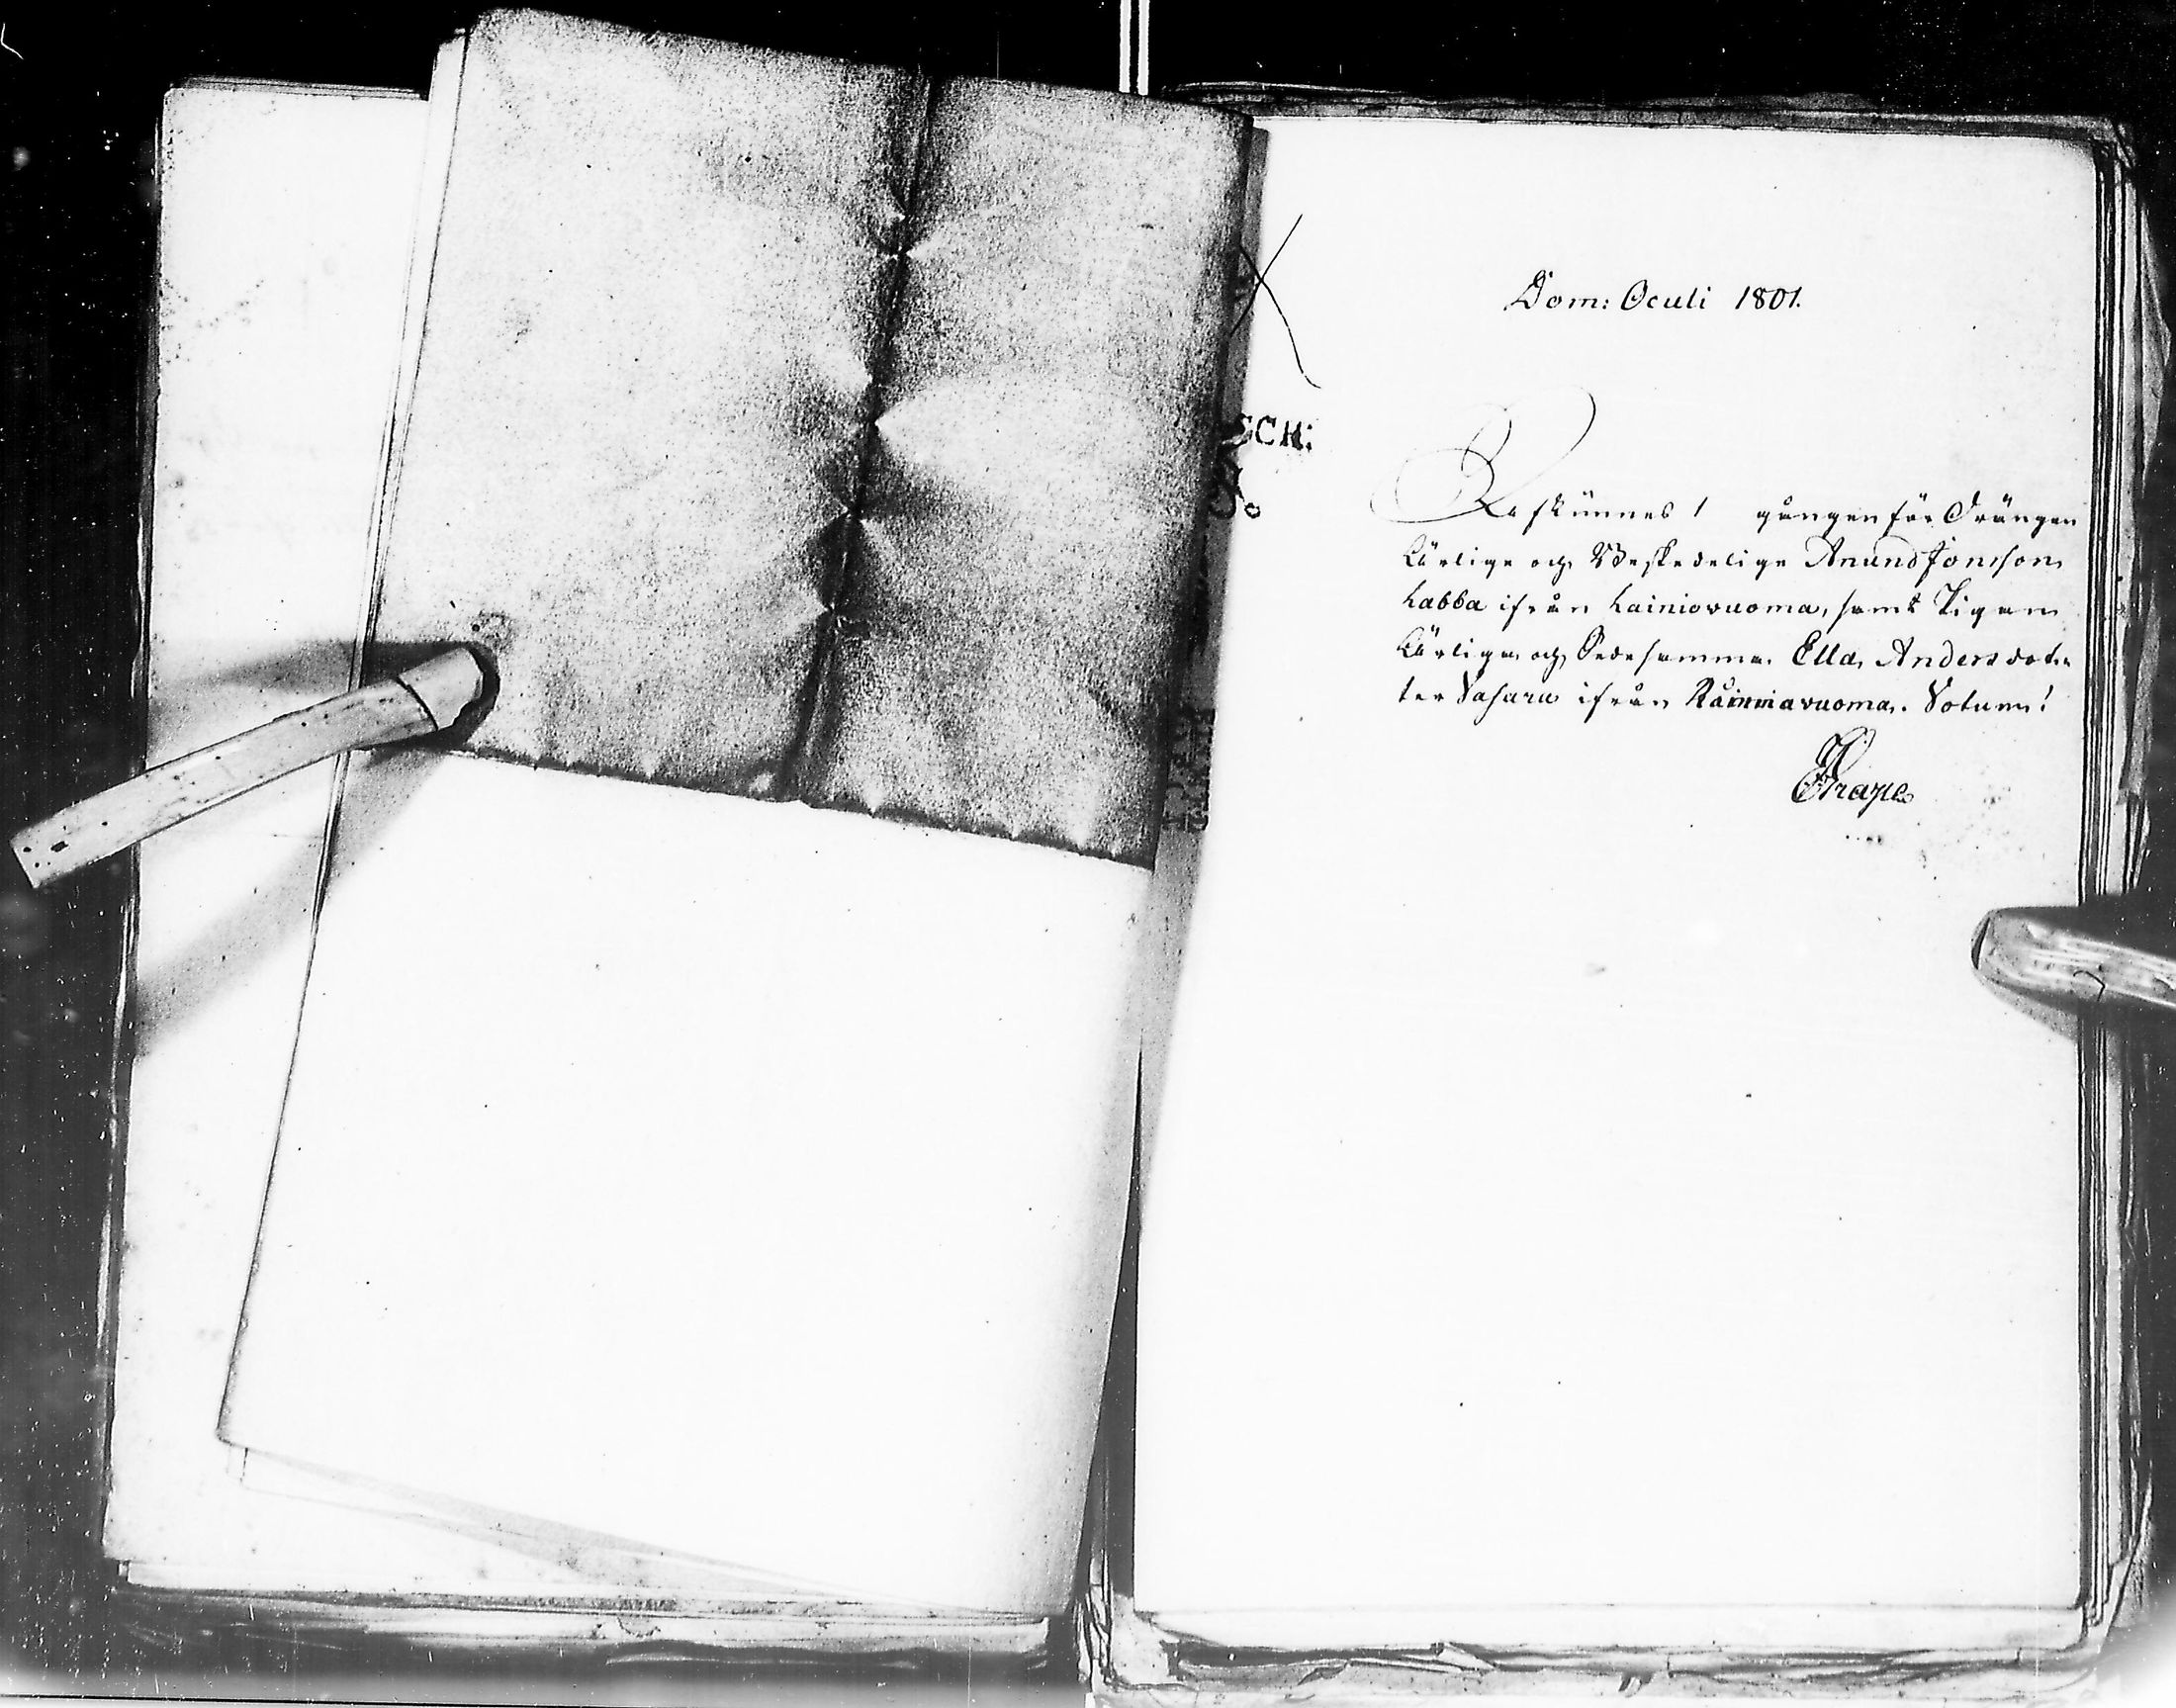 Dom: Oculi 1801.
SCH:
Afkünnes 1 gången för Drängen
Ärlige och Beskedelige Anund Jonsson
Labba ifrån Lainiovuoma, samt Pigan
Ärliga och Gudesamma Ella Andersdot-
ter Vasara ifrån Råinniavuoma. Votum!
Grape